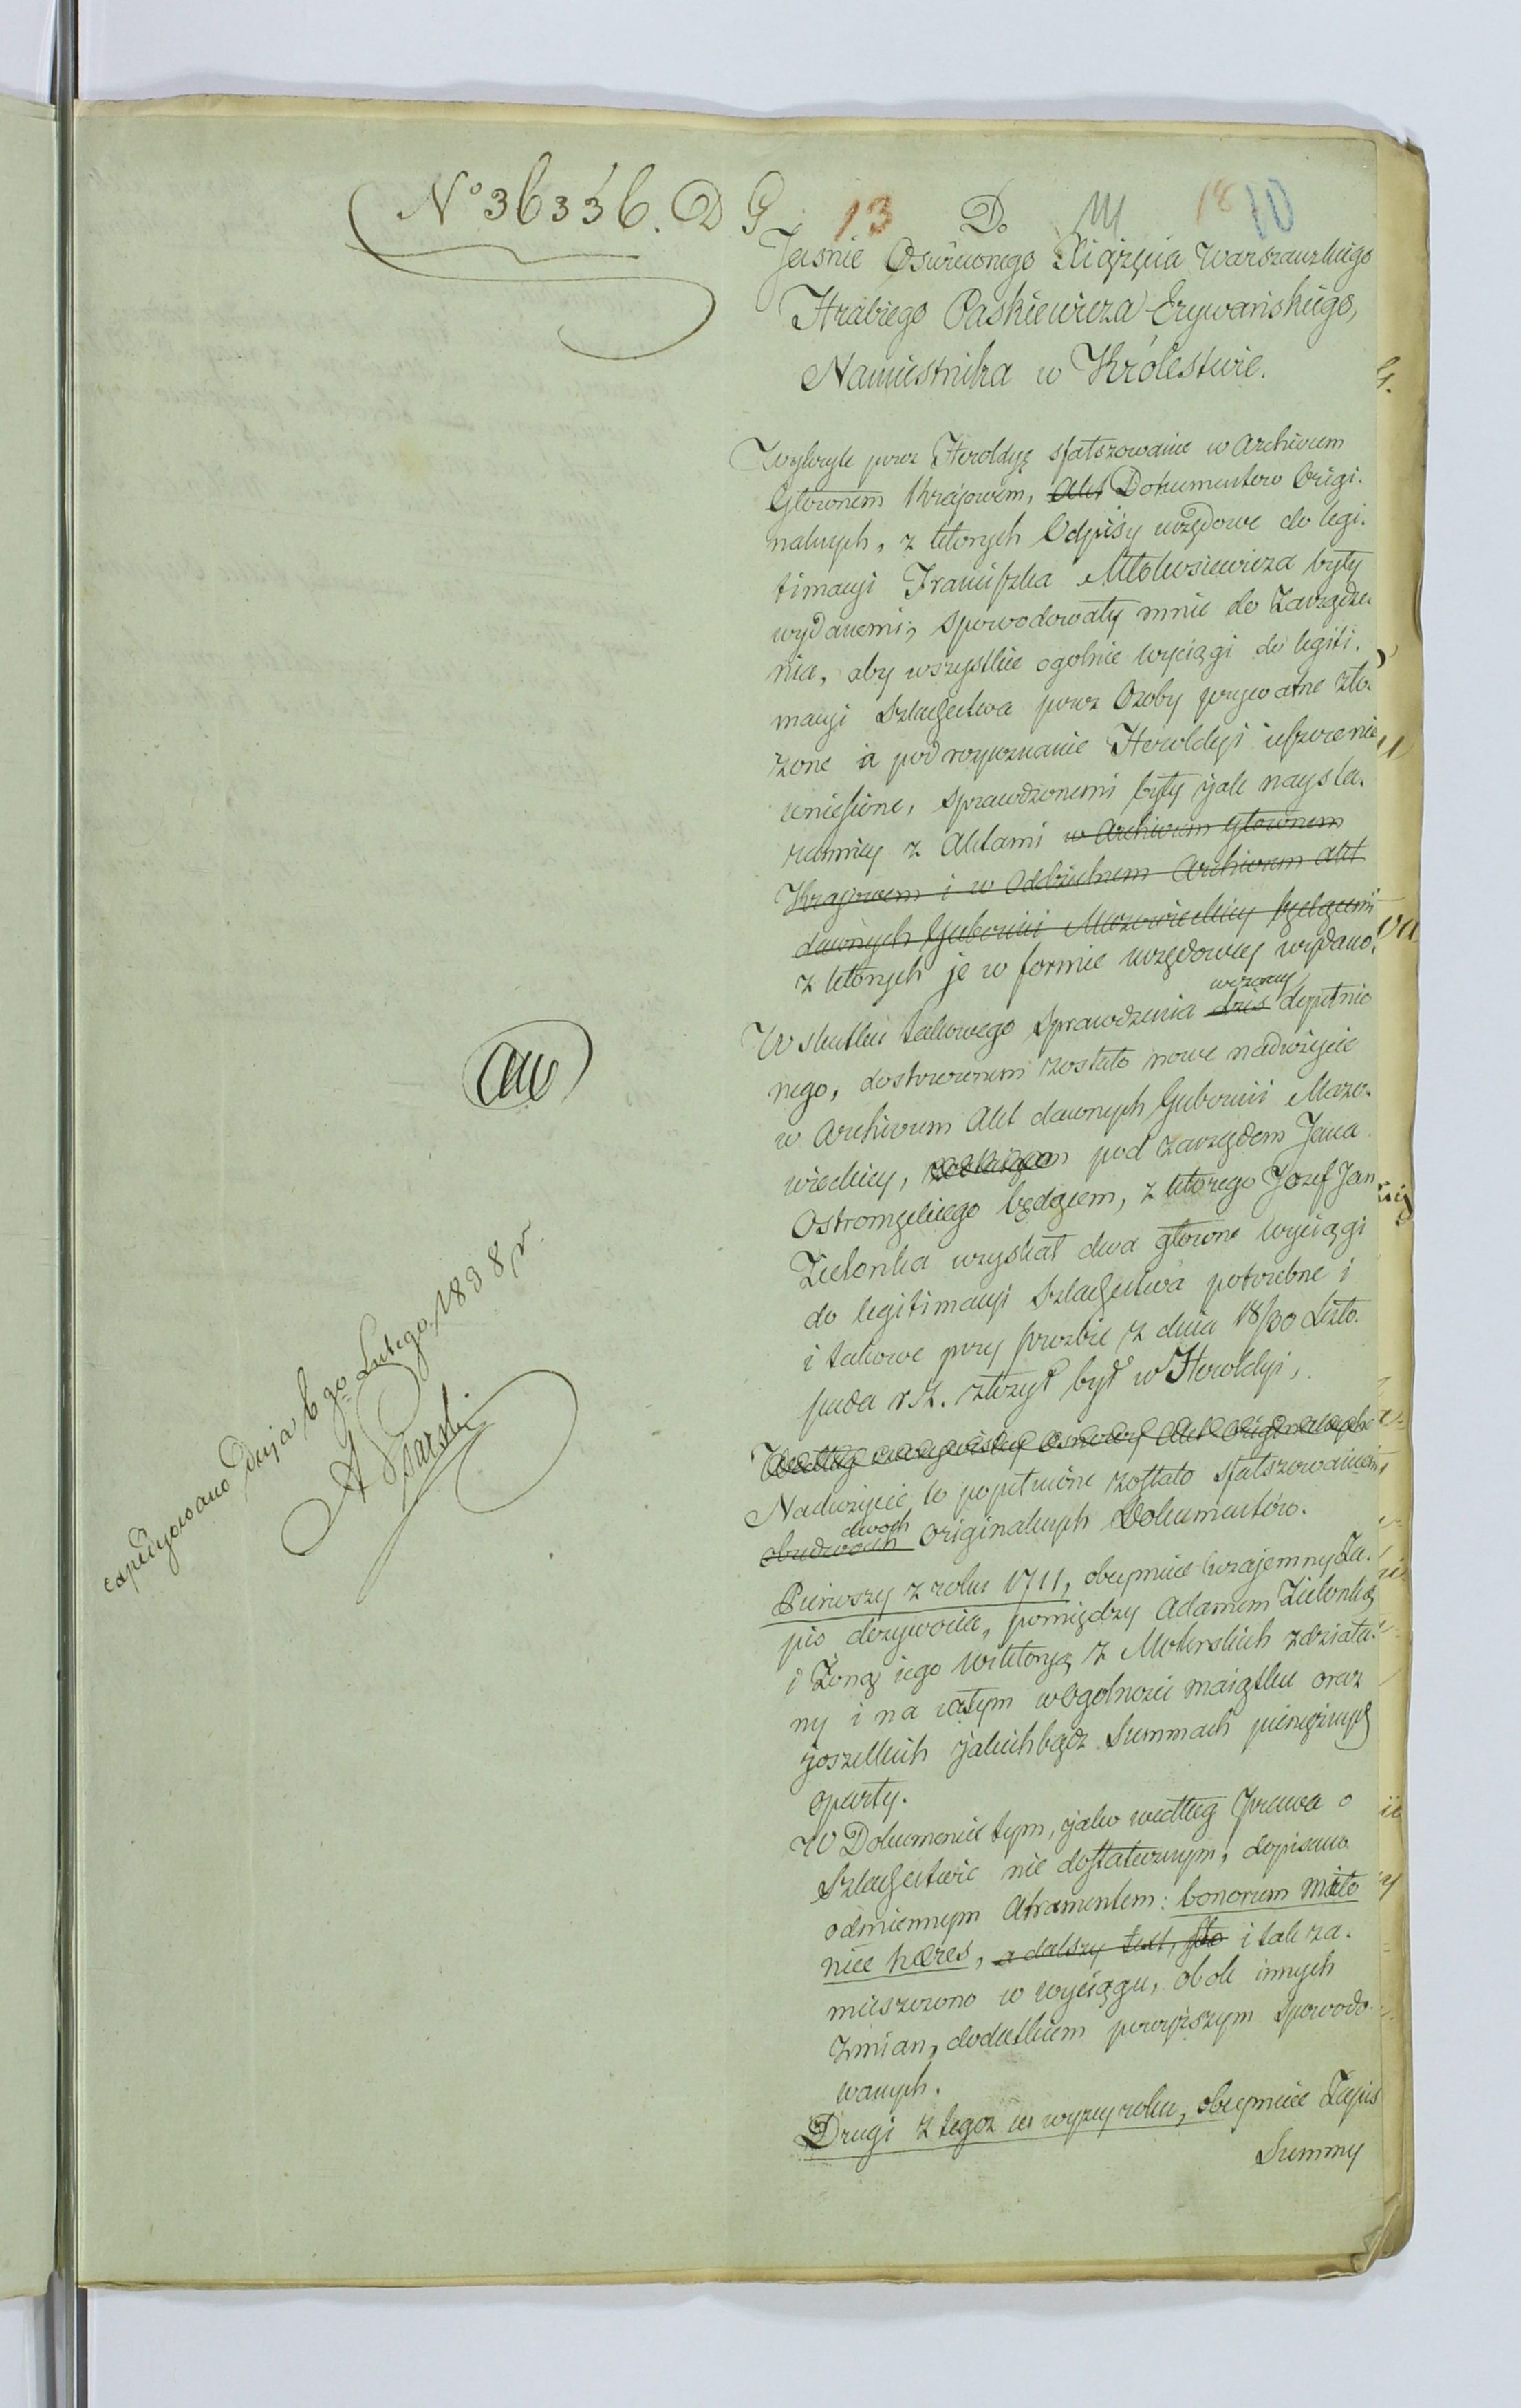 No 36336. D G
13 Do 18 10
Jaśnie Oswieconego Xiążęcia Warszawskiego
Hrabiego Paskiewicza Erywańskiego,
Namiestnika w Królestwie.
Wykryte przez Heroldyę sfałszowanie w Archiwum
Głownem Krajowem, Akt Dokumentow Origi.
nalnych, z ktorych Odpisy urzędowe do legi.
timacyi Franciszka Młokosiewicza były
wydanemi, spowodowały mnie do Zarządze
nia, aby wszystkie ogolnie wyciągi do legiti.
macyi Szlachectwa przez Osoby prywatne zło.
zone a pod rozpoznanie Heroldyi ieszcze nie
wniesione, sprawdzonemi były jak naysta.
ranniey z Aktami w Archiwum głownem
Krajowem i w Oddzielnem Archiwum Akt
dawnych Gubernii Mazowieckiey będącemi
z ktorych je w formie urzędowey wydano.
W skutku takowego sprawdzenia dzis wczoray dopełnio
nego, dostrzezonem zostało nowe naduzycie
w Archiwum Akt dawnych Gubernii Mazo.
wieckiey, pod zarządem Jana
Ostromęckiego będącem, z ktorego Jozef Jan
Zielonka uzyskał dwa głowne Wyciągi
do legitimacyi Szlachectwa potrzebne i
i takowe przy prozbie z dnia 18/30 Listo.
pada r. z. złozył był w Heroldyi,
Według rzeczywistey osnowy Akt Originalnych
Naduzycie to popełnione zostało sfałszowaniem
obudwoch dwoch Originalnych Dokumentów.
Pierwszy z roku 1711, obeymuie wzajemny Za.
pis dozywocia, pomiędzy Adamem Zielonką
i Zoną iego Wiktoryą z Mokrskich zdziała.
ny i na całym w ogolnosci maiątku oraz
wszelkich jakichbądz Summach pieniężnych
oparty.
W Dokumencie tym, jako według Prawa o
Szlachectwie nie dostatecznym, dopisano
odmiennym Atramentem: bonorum Miło
nice hæres, a dalszy text, i tak za.
mieszczono w wyciągu, obok innych
Zmian, dodatkiem powyższym spowodo
wanych.
Drugi z tegoz wyzey roku, obeymuie Zapis
Summy
expedyowano dnia 6go Lutego 1838 r.
A Psarski